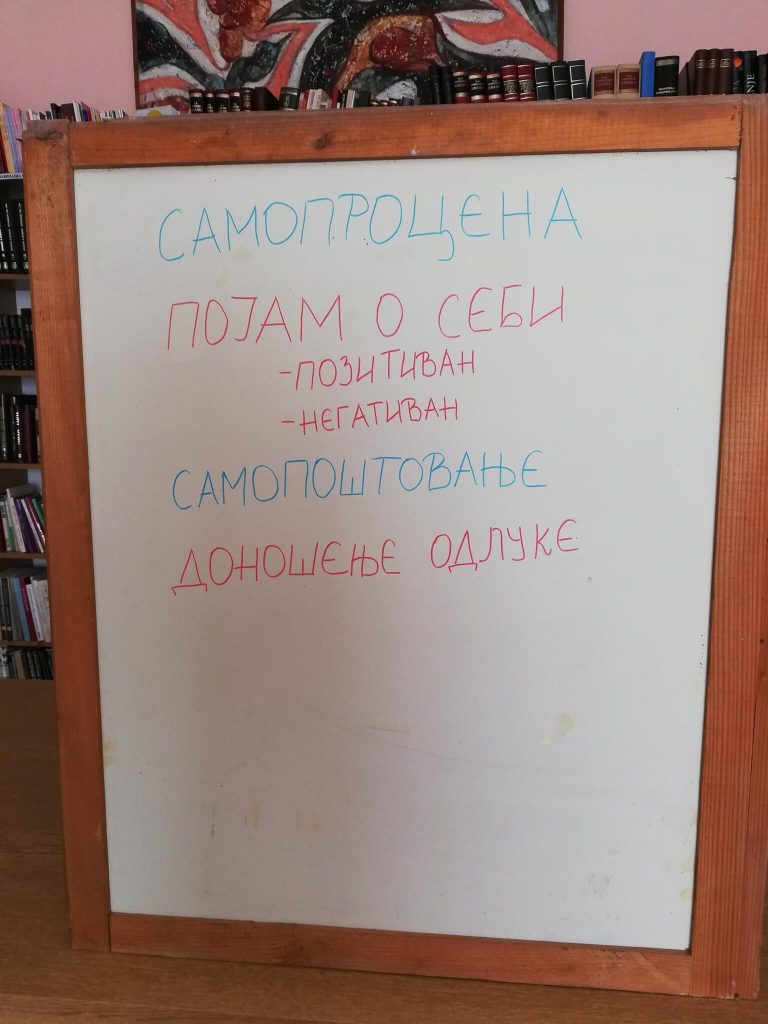 САМОПРОЦЕНА
ПОЈАМ О СЕБИ
-ПОЗИТИВАН
-НЕГАТИВАН
САМОПОШТОВАЊЕ
ДОНОШЕЊЕ ОДЛУКЕ